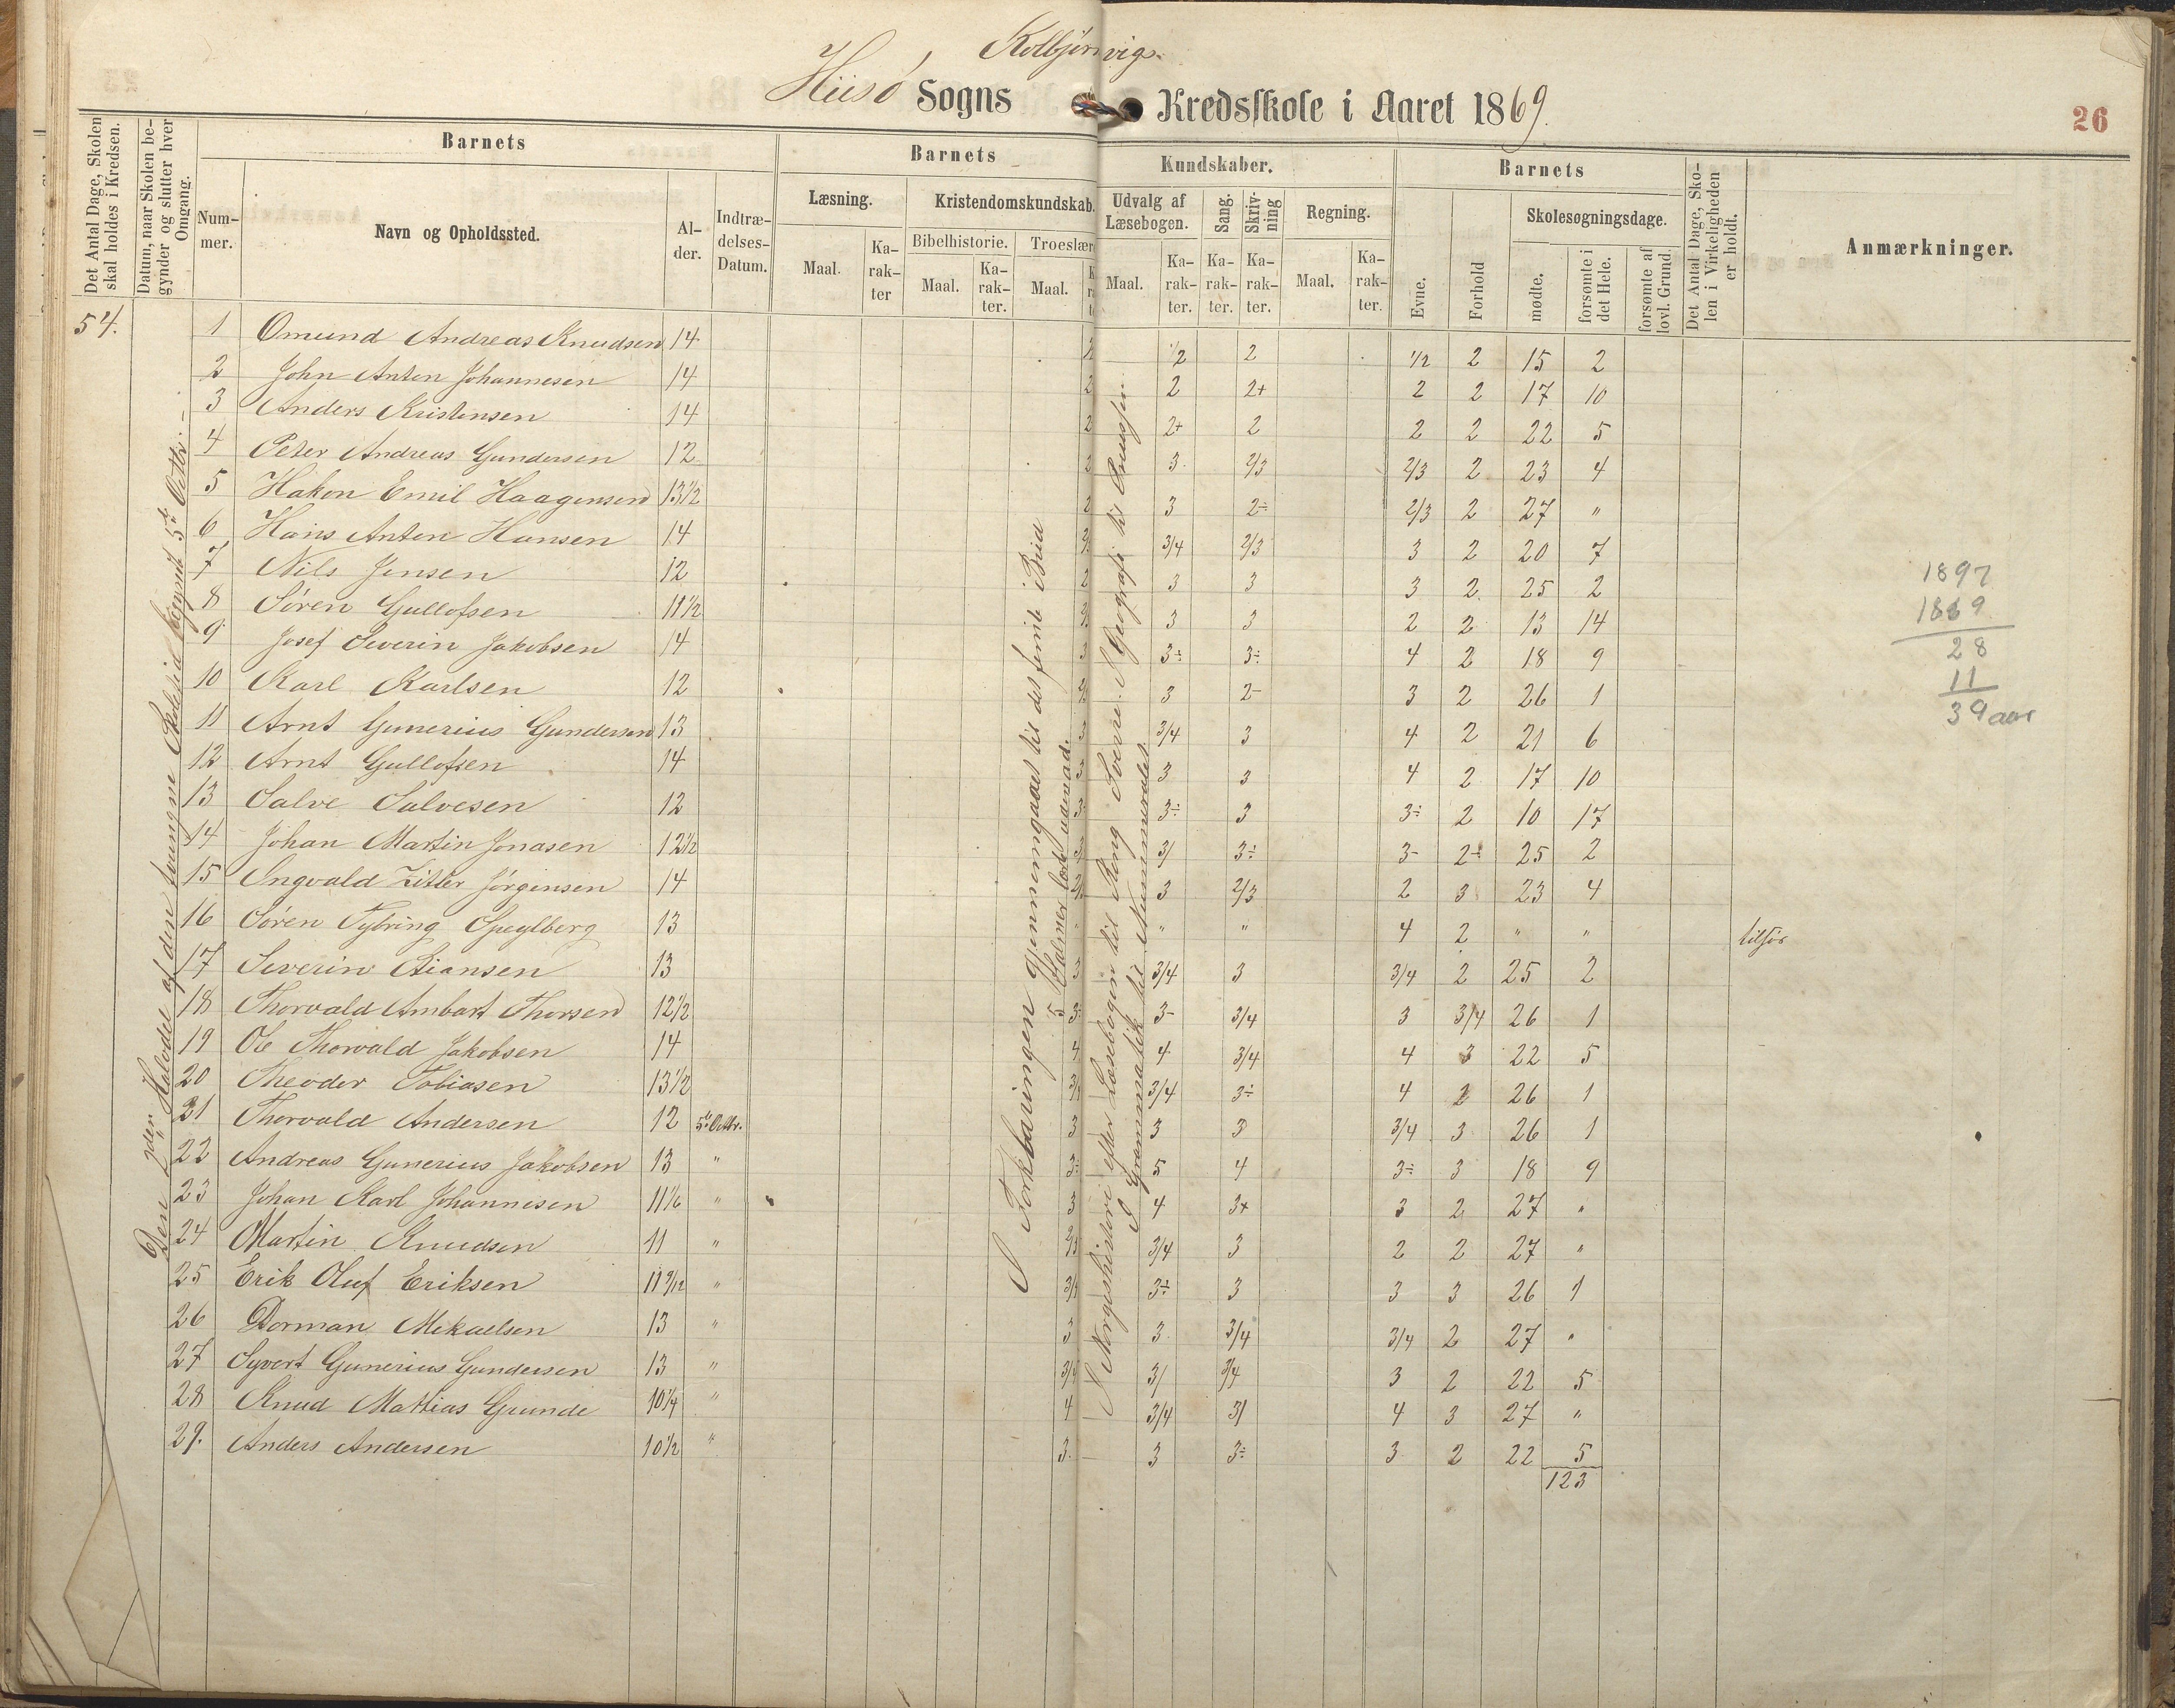 Kolbjørnvigs
Hiisø Sogns Kredsskole i Aaret 1869.
26
Det Antal Dage, Skolen skal holdes i Kredsen.
Datum, naar Skolen begynder og slutter hver Omgang.
Barnets
Nummer.
Navn og Opholdssted.
Alder.
Indtrædelses-Datum.
Barnets
Læsning.
Maal.
Karakter
Kristendomskundskab.
Bibelhistorie.
Maal.
Karakter.
Troeslær
Maal.
Kundskaber.
Udvalg af Læsebogen.
Maal.
Karakter.
Sang.
Karakter.
Skrivning
Karakter.
Regning.
Maal.
Karakter.
Barnets
Evne.
Forhold
Skolesøgningsdage.
mødte.
forsømte i det Hele.
forsømte af lovl. Grund
Det Antal Dage, Skolen i Virkeligheden er holdt.
Anmærkninger.
54.
1 Omund Andreas Knudsen 14 1/2 2 1/2 2 15 2
2 John Anton Johannesen 14 2 2 2+ 2 2 17 10
3 Anders Kristensen 14 2 2+ 2 2 2 22 5
4 Peter Andreas Gundersen 12 2 3 2/3 2/3 2 23 4
5 Hakon Emil Haagensen 13 1/2 2 3 2÷ 2/3 2 27 "
6 Hans Anton Hansen 14 3/4 2/3 3 2 20 7
7 Nils Jensen 12 2 3 3 3 2 25 2
8 Søren Gullofsen 11 1/2 3 3 2 2 13 14
9 Josef Severin Jakobsen 14 3 3÷ 3÷ 4 2 18 9
10 Karl Karlsen 12 3 2- 3 2 26 1
11 Arnt Gunerius Gundersen 13 3 3/4 3 4 2 21 6
12 Arnt Gullofsen 14 3 3 4 2 17 10
13 Salve Salvesen 12 3 3÷ 3 3÷ 2 10 17
14 Johan Martin Jonasen 12 1/2 3/ 3÷ 3- 2÷ 25 2
15 Ingvald Zitler Jørgensen 14 3 2/3 2 3 23 4
16 Søren Tybring 13 " " " 4 2 " "
17 Severin 13 3 3/4 3 3/4 2 25 2
18 Thorvald Ambart Thorsen 12 1/2 3 3- 3/4 3 3/4 26 1
19 Ole Thorvald Jakobsen 14 4 4 3/4 4 3 22 5
20 Theodor Tobiasen 13 1/2 3/4 3÷ 4 2 26 1
21 Thorvald Andersen 12 5te Octbr. 3 3 3 3/4 3 26 1
22 Andreas Gunerius Jakobsen 13 " 3÷ 5 4 3÷ 3 18 9
23 Johan Karl Johannesen 11 1/6 " 3 4 3+ 3 2 27 "
24 Martin Knudsen 11 " 3/4 3 2 2 27 "
25 Erik Oluf Eriksen 11 9/12 " 3÷ 3 3 3 26 1
26 Dorman Mikaelsen 13 " 3 3 3/4 3/4 2 27 "
27 Syvert Gunerius Gundersen 13 " 3/4 3/ 3/4 3 2 22 5
28 Knud Mattias Grunde 10 1/4 " 4 3/4 3/ 4 3 27 "
29. Anders Andersen 10 1/2 " 3. 3 3÷ 3 2 22 5
123
Den 2den Halvdel af den tvungne Skoletid begyndt 5te Octbr.
I Forklaringen gjennemgaaet til det femte Bud
5 Psalmer lært udenad.
I Norgeshistorie efter Læsebogen til Kong Sverre. I Geografi til Preussen
I Grammatik til Nummeralet.
1897
1869
28
11
39 aar